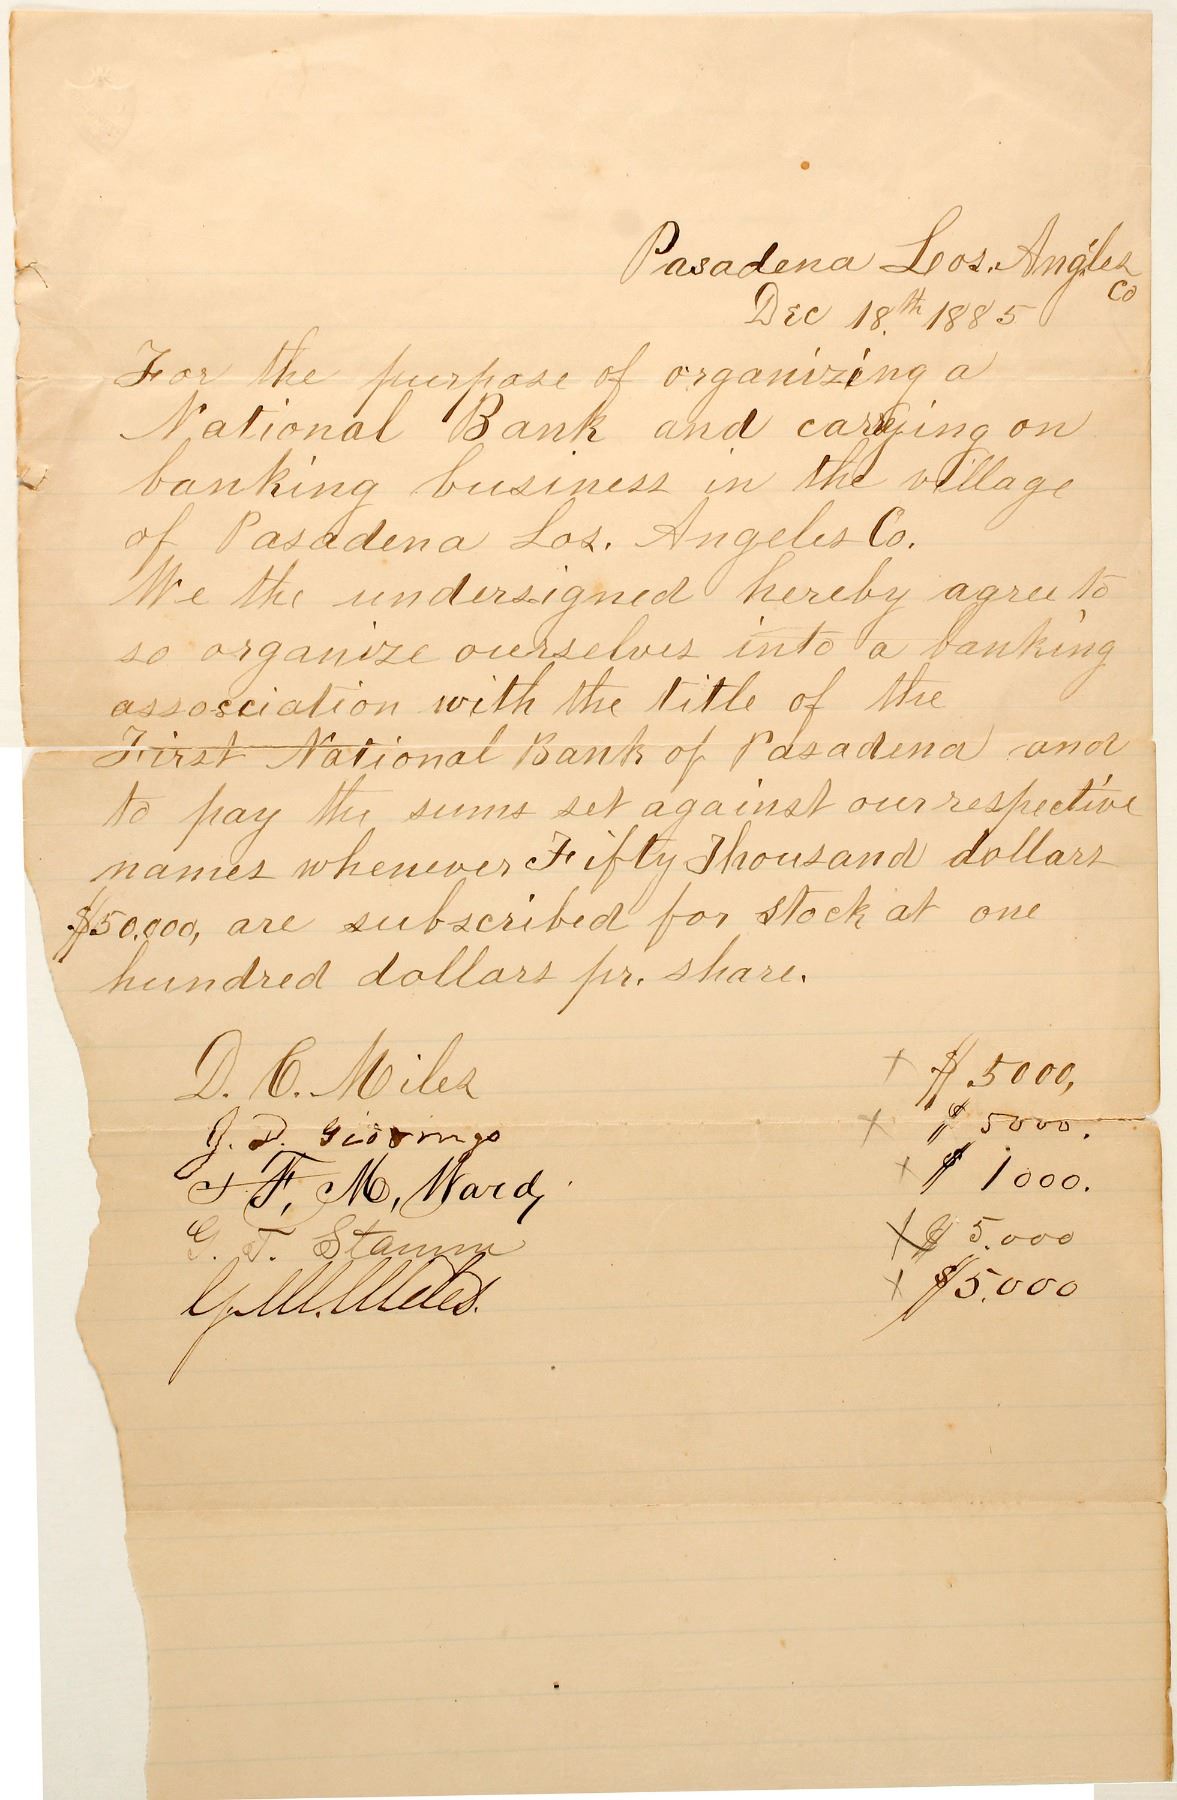 Pasadena Los. Angles
Co
Dec 18th 1885
For the purpose of organizing a
National Bank and carrying on
banking business in the village
of Pasadena Los. Angeles Co.
We the undersigned hereby agree to
so organize ourselves into a banking
association with the title of the
First National Bank of Pasadena and
to pay the sums set against our respective
names whenever Fifty Thousand dollars
$50.000, are subscribed for stock at one
hundred dollars pr. share.
D. C. Miles x $ 5000,
J. D. x $ 5000.
F. M. Ward, x $ 1000.
G. T. Stamm x $ 5.000
x $5.000